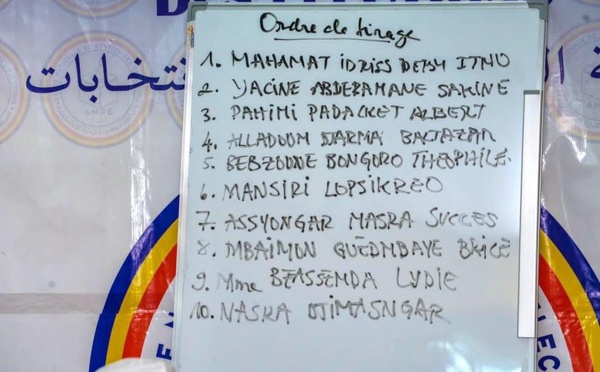 Ordre de tirage
1. MAHAMAT IDRISS DEBY ITNO
2. YACINE ABDERAMANE SAKINE
3. PAHIMI PADACKET ALBERT
4. ALLADOUM DJARMA BALTAZAR
5. BEBZOUNE BONGORO THEOPHILE.
6. MANSIRI LOPSIKREO
7. ASSYONGAR MASRA SUCCES
8. MBAIMON GUEDMBAYE BRICE
9. Mme BEASSEMDA LYDIE
10. NASRA DJIMASNGAR